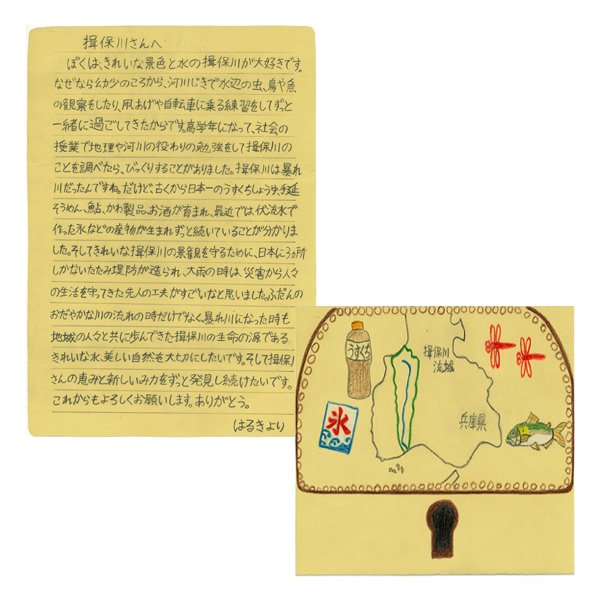 揖保川さんへ
ぼくは、きれいな景色と水の揖保川が大好きです。
なぜなら幼少のころから、河川じきで水辺の虫、鳥や魚
の観察をしたり、凧あげや自転車に乗る練習をしてずっと
一緒に過ごしてきたからです。高学年になって、社会の
授業で地理や河川の役わりの勉強をして揖保川の
ことを調べたら、びっくりすることがありました。揖保川は暴れ
川だったんですね。だけど、古くから日本一のうすくちしょうゆ、手延
そうめん、鮎、かわ製品、お酒が育まれ、最近では伏流水で
作った氷などの産物が生まれずっと続いていることが分かりま
した。そしてきれいな揖保川の景観を守るために、日本に3ヵ所
しかないたたみ堤防が造られ、大雨の時は、災害から人々
の生活を守ってきた先人の工夫がすごいなと思いました。ふだんの
おだやかな川の流れの時だけでなく、暴れ川になった時も
地域の人々と共に歩んできた揖保川の生命の源である
きれいな水、美しい自然を大切にしたいです。そして揖保川
さんの恵みと新しいみ力をずっと発見し続けたいです。
これからもよろしくお願いします。ありがとう。
はるきより
うすくち
揖保川
流域
兵庫県
氷